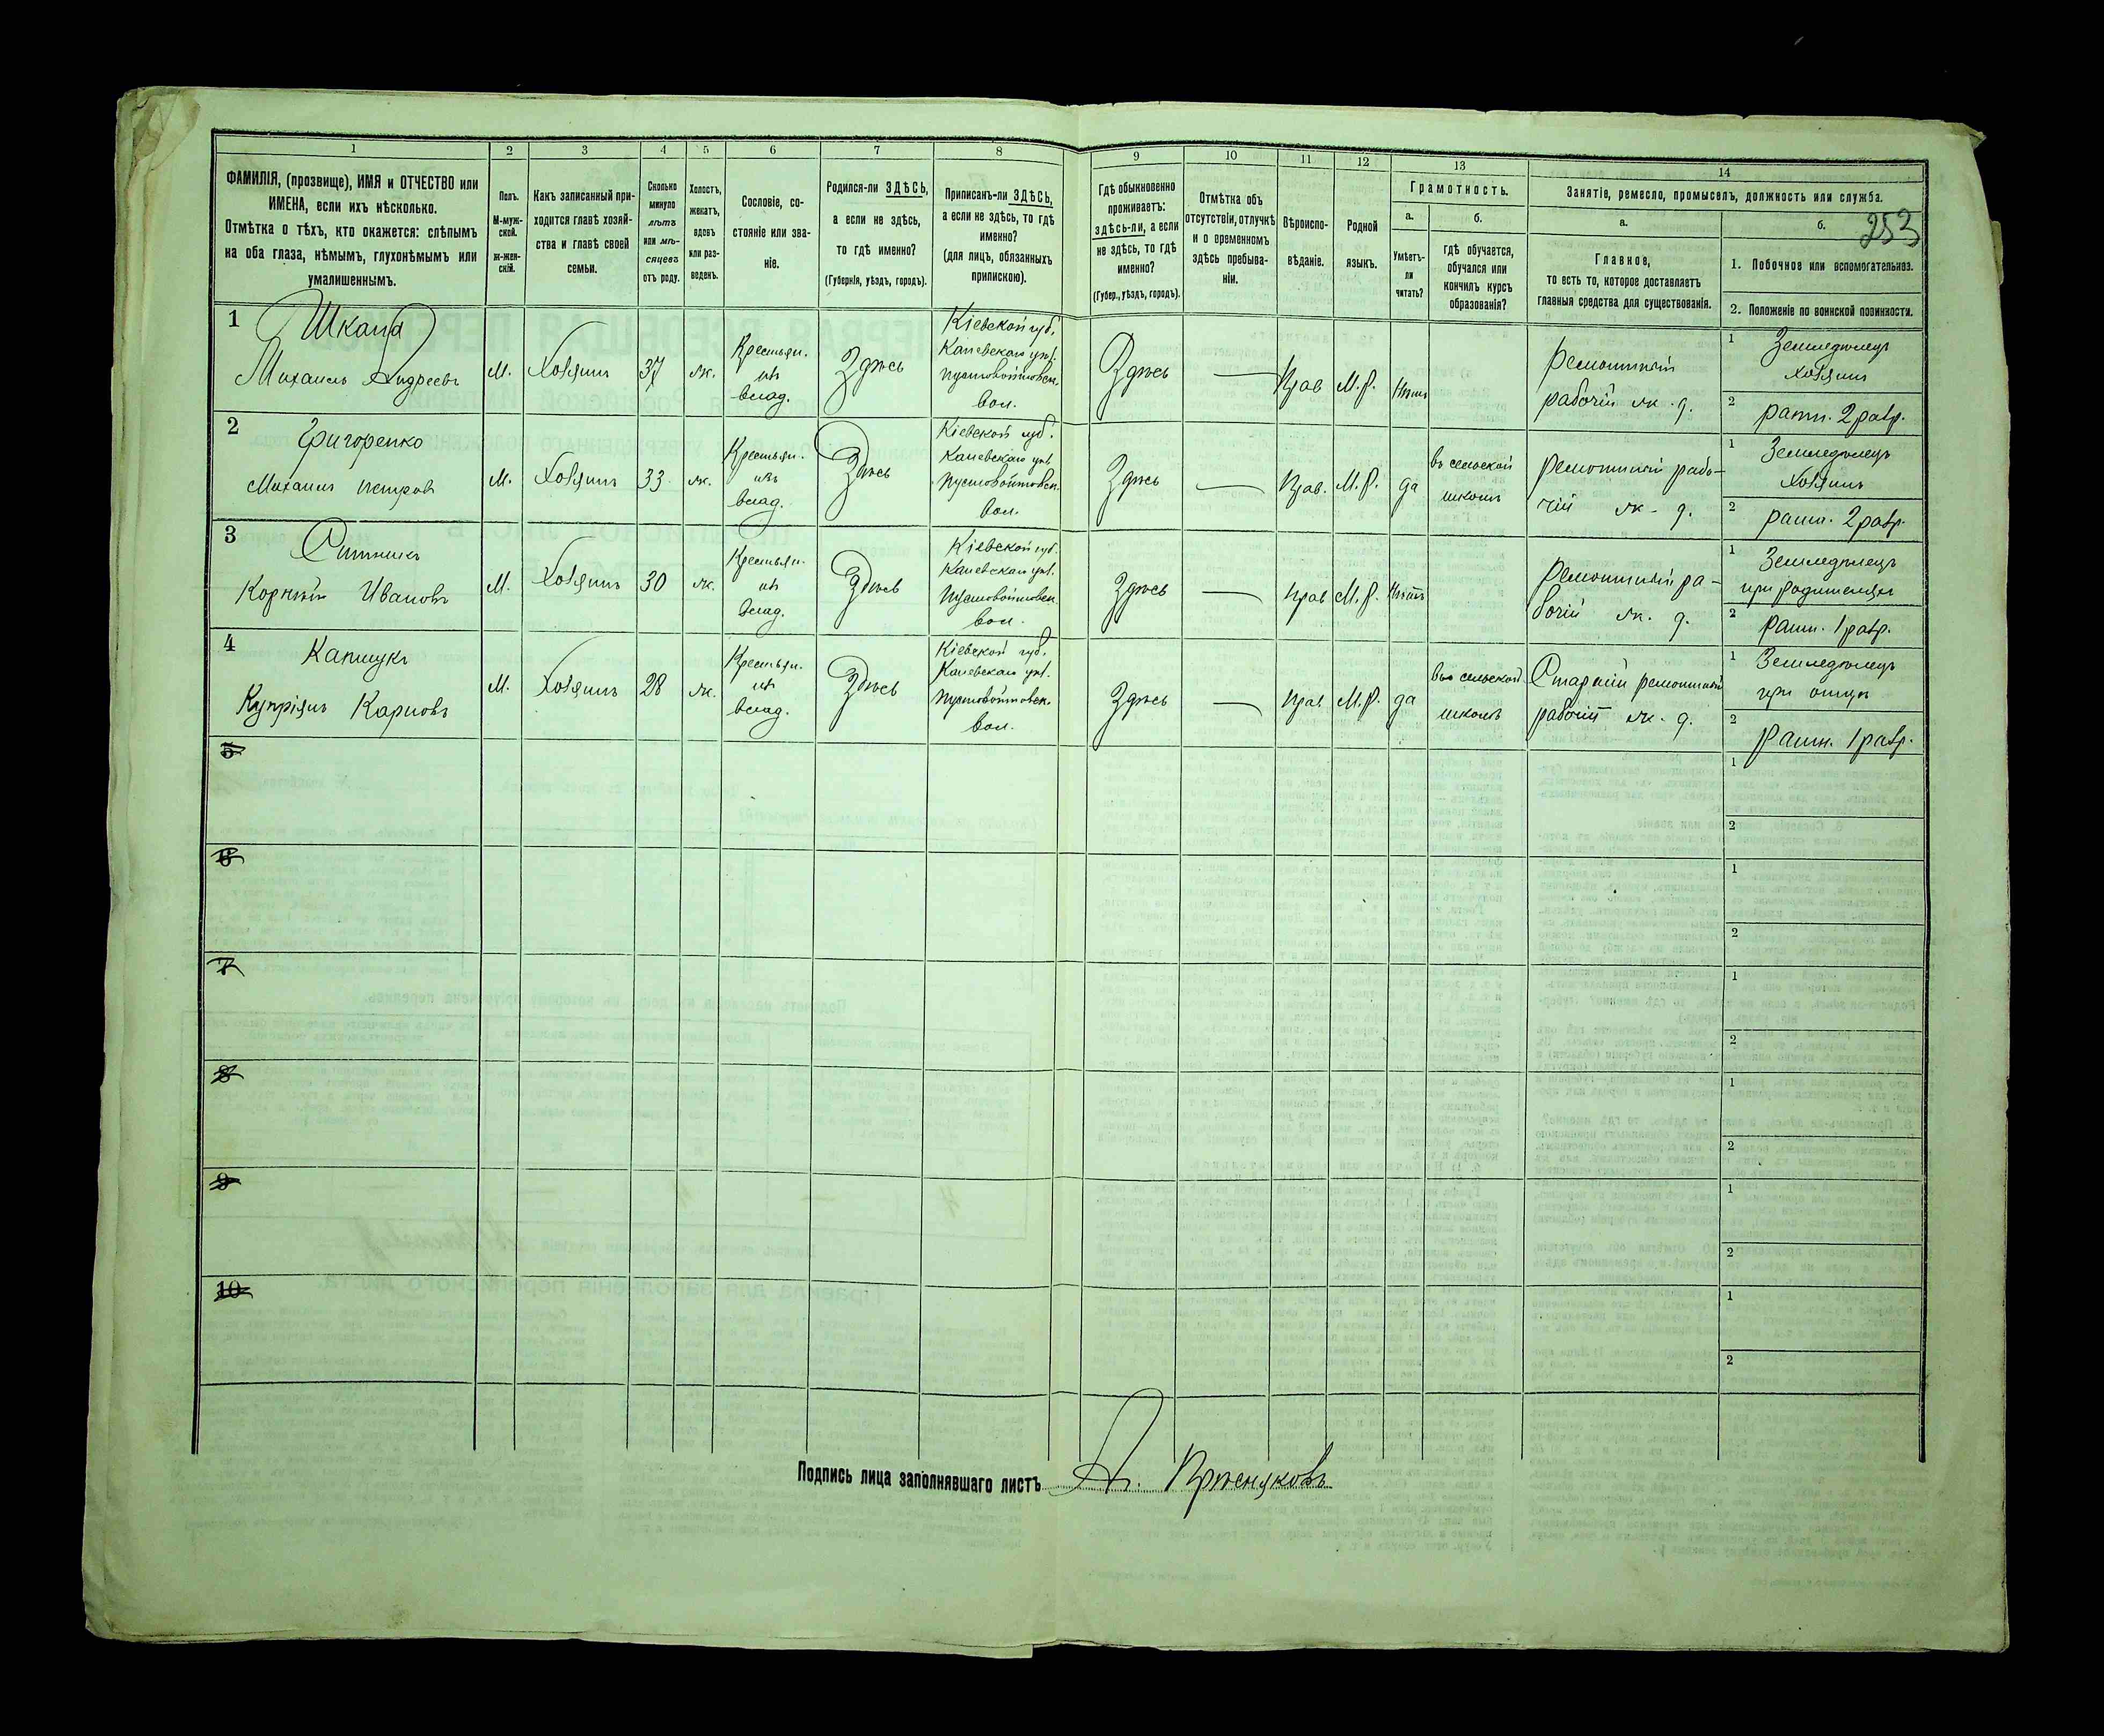 1 2 3 4 5 6 7 8 9 10 11 12 13 14
ФАМИЛІЯ, (прозвище), ИМЯ и ОТЧЕСТВО или
ИМЕНА, если ихъ нѣсколько.
Отмѣтка о тѣхъ, кто окажется: слѣпымъ
на оба глаза, нѣмымъ, глухонѣмымъ или
умалишеннымъ.
Полъ.
М-муж-
ской.
Ж-жен-
скій.
Какъ записанный при-
ходится главѣ хозяй-
ства и главѣ своей
семьи.
Сколько
минуло
лѣтъ
или мѣ-
сяцевъ
отъ роду.
Холостъ,
женатъ,
вдовъ
или раз-
веденъ.
Сословіе, со-
стояніе или зва-
ніе.
Родился-ли ЗДѢСЬ,
а если не здѣсь,
то гдѣ именно?
(Губернія, уѣздъ, городъ).
Приписанъ-ли ЗДѢСЬ,
а если не здѣсь, то гдѣ
именно?
(для лицъ, обязанныхъ
припискою).
Гдѣ обыкновенно
проживаетъ:
здѣсь-ли, а если
не здѣсь, то гдѣ
именно?
(Губер., уѣздъ, городъ).
Отмѣтка объ
отсутствіи, отлучкѣ
и о временномъ
здѣсь пребыва-
ніи.
Вѣроиспо-
вѣданіе.
Родной
языкъ.
Грамотность.
а.
Умѣетъ-
ли
читать?
б.
гдѣ обучается,
обучался или
кончилъ курсъ
образованія?
Занятіе, ремесло, промыселъ, должность или служба.
а.
Главное,
то есть то, которое доставляетъ
главныя средства для существованія.
б.
253
1. Побочное или вспомогательное.
2. Положеніе по воинской повинности.
1
Шкапа
Михаилъ Андреевъ
М.
Хозяинъ
37
ж.
Крестьян.
изъ
влад.
Здѣсь
Кіевской губ.
Каневскаго уѣз.
Пустовойтовск.
вол.
Здѣсь
—
Прав
М.р.
Нѣтъ
Ремонтный
рабочій ж. д.
1 Земледѣлецъ
хозяинъ
2 ратн. 2 разр.
2
Григоренко
Михаилъ Петровъ
М.
Хозяинъ
33
ж.
Крестьян.
изъ
влад.
Здѣсь
Кіевской губ.
Каневскаго уѣз.
Пустовойтовск.
вол.
Здѣсь
—
Прав.
М.р.
да
въ сельской
школѣ
Ремонтный рабо-
чій ж. д.
1 Земледѣлецъ
хозяинъ
2 ратн. 2 разр.
3
Ситникъ
Корнѣй Ивановъ
М.
Хозяинъ
30
ж.
Крестьян.
изъ
влад.
Здѣсь
Кіевской губ.
Каневскаго уѣз.
Пустовойтовск.
вол.
Здѣсь
—
Прав
М.р.
Нѣтъ
Ремонтный ра-
бочій ж. д.
1 Земледѣлецъ
при родителяхъ
2 ратн. 1 разр.
4
Капшукъ
Купріянъ Карповъ
М.
Хозяинъ
28
ж.
Крестьян.
изъ
влад.
Здѣсь
Кіевской губ.
Каневскаго уѣз.
Пустовойтовск.
вол.
Здѣсь
—
Прав
М.р.
да
въ сельской
школѣ
Старшій ремонтный
рабочій ж. д.
1 Земледѣлецъ
при отцѣ
2 ратн. 1 разр.
5
1
2
6
1
2
7
1
2
8
1
2
9
1
2
10
1
2
Подпись лица заполнявшаго листъ